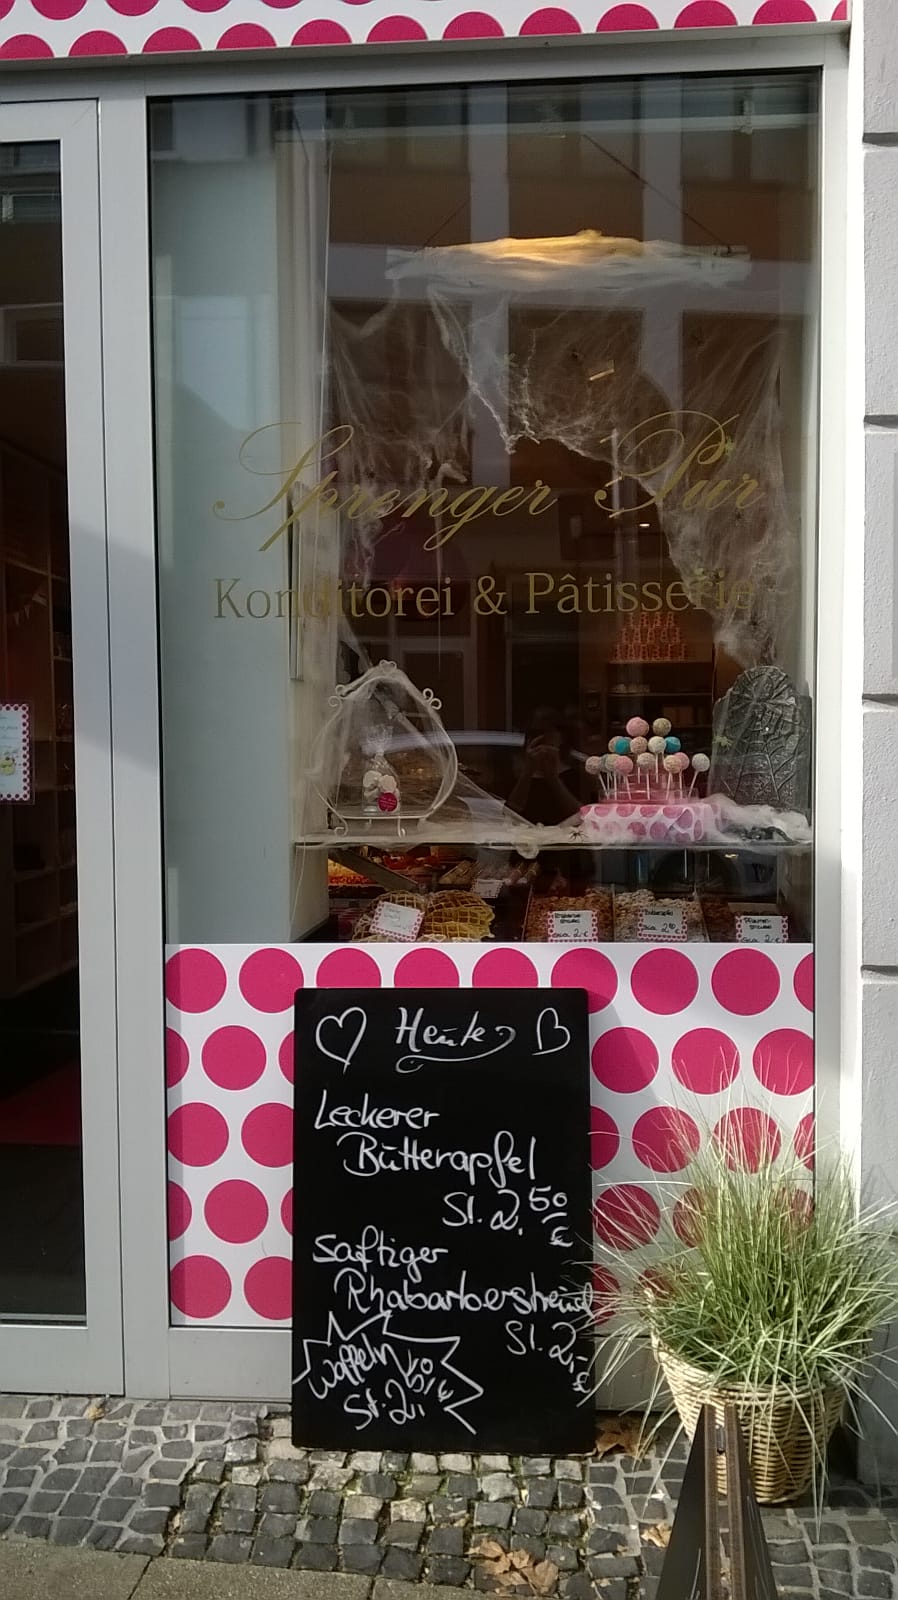 Sprenger Pur
Konditorei & Pâtisserie
Butterapfel
Stck 2.50
2.-€
2.-€
Heute
Leckerer
Butterapfel
St. 2,50 €
Saftiger
Rhabarberstreusel
St. 2,- €
Waffeln
St. 2,50 €